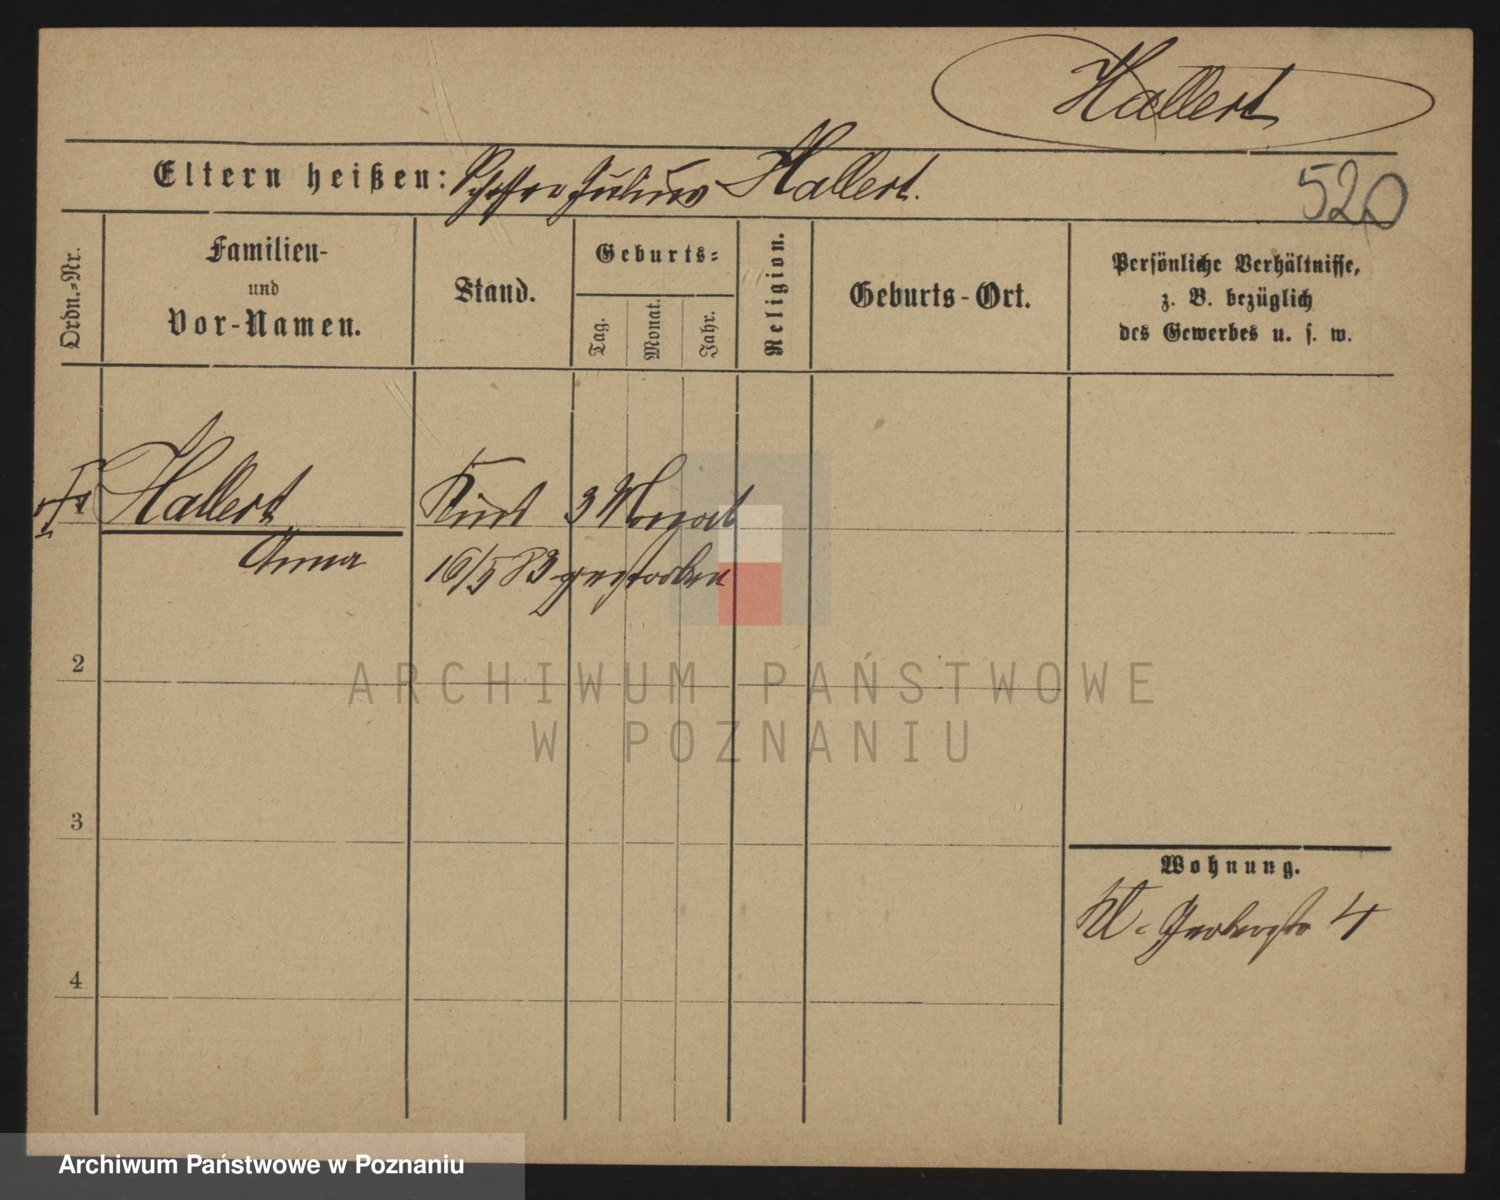 Hallert
Eltern heißen: Julius Hallert.
520
Ordn.-Nr.
Familien-
und
Vor-Namen.
Stand.
Geburts-
Tag.
Monat.
Jahr.
Religion.
Geburts-Ort.
Persönliche Verhältnisse,
z. B. bezüglich
des Gewerbes u. s. w.
Hallert
Anna
Kind 3 Monat
16/5 83 gestorben
2
3
4
Wohnung.
Kl. Gerberstr 4
ARCHIWUM PAŃSTWOWE
W POZNANIU
Archiwum Państwowe w Poznaniu